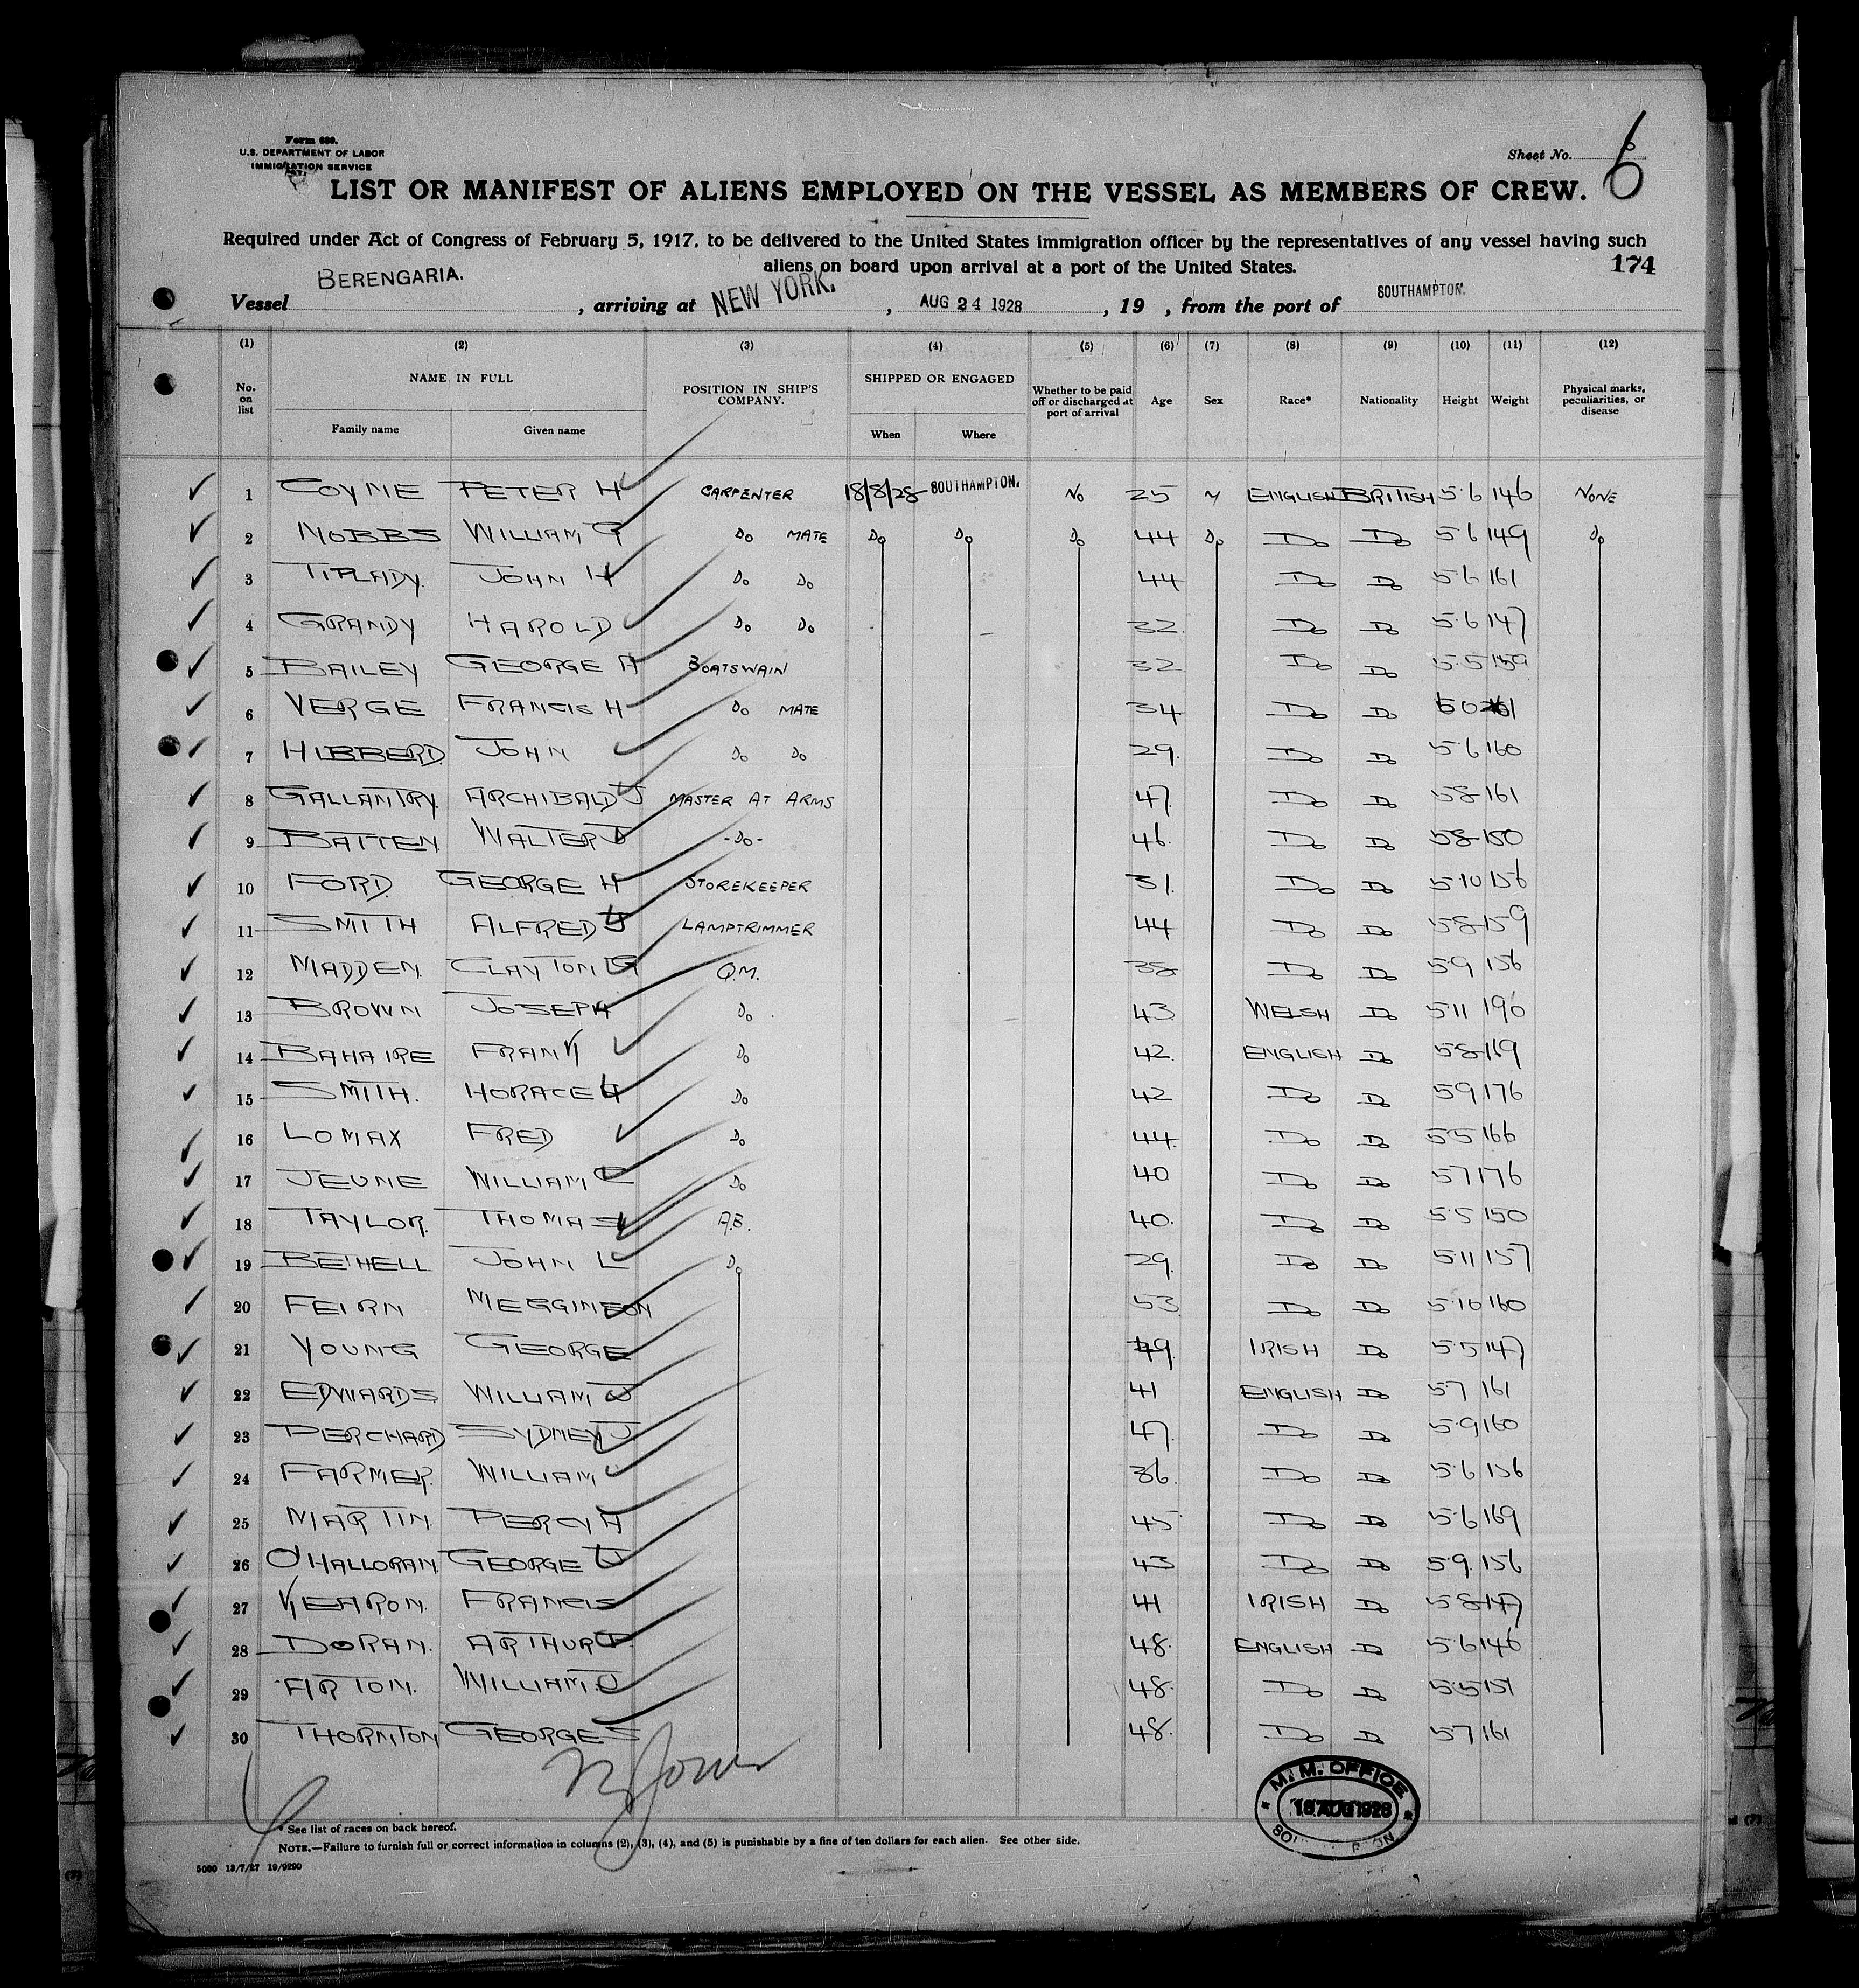 Form 680.
U.S. DEPARTMENT OF LABOR
IMMIGRATION SERVICE
Sheet No. 6
LIST OR MANIFEST OF ALIENS EMPLOYED ON THE VESSEL AS MEMBERS OF CREW.
Required under Act of Congress of February 5, 1917, to be delivered to the United States immigration officer by the representatives of any vessel having such
aliens on board upon arrival at a port of the United States.
174
Vessel BERENGARIA. , arriving at NEW YORK. , AUG 24 1928 , 19 , from the port of SOUTHAMPTON.
(1) (2) (3) (4) (5) (6) (7) (8) (9) (10) (11) (12)
No. on list NAME IN FULL Family name Given name POSITION IN SHIP'S COMPANY. SHIPPED OR ENGAGED When Where Whether to be paid off or discharged at port of arrival Age Sex Race* Nationality Height Weight Physical marks, peculiarities, or disease
1 COYNE PETER H CARPENTER 18/8/28 SOUTHAMPTON. No 25 M ENGLISH BRITISH 5.6 146 NONE
2 MOBBS WILLIAM G Do MATE Do Do Do 44 Do Do Do 5.6 149 Do
3 TIPLADY. JOHN H Do Do 44 Do Do 5.6 161
4 GRANDY HAROLD Do Do 32 Do Do 5.6 147
5 BAILEY GEORGE A BOATSWAIN 32 Do Do 5.5 159
6 VERGE FRANCIS H Do MATE 34 Do Do 6 0
7 HIBBERD. JOHN Do Do 29. Do Do 5.6 160
8 GALLANTRY. ARCHIBALD J MASTER AT ARMS 47. Do Do 5 8 161
9 BATTEN WALTER J -Do- 46. Do Do 5 8 150
10 FORD. GEORGE H STOREKEEPER 31. Do Do 5.10 156
11 SMITH ALFRED J LAMPTRIMMER 44 Do Do 5 8 159
12 MADDEN. CLAYTON G Q.M. 38 Do Do 5 9 156
13 BROWN JOSEPH Do 43 WELSH Do 5.11 190
14 BAHAIRE FRANK Do 42. ENGLISH Do 5 8 169
15 SMITH. HORACE H Do 42 Do Do 5 9 176
16 LOMAX FRED Do 44. Do Do 5 5 166
17 JEUNE WILLIAM C Do 40 Do Do 5 7 176
18 TAYLOR. THOMAS A.B. 40. Do Do 5.5 150
19 BETHELL JOHN L Do 29. Do Do 5.11 157
20 FEIRN MEGGINSON 53 Do Do 5.10 160
21 YOUNG GEORGE 49. IRISH Do 5.5 147
22 EDWARDS WILLIAM J 41 ENGLISH Do 5 7 161
23 PERCHARD SYDNEY J 47. Do Do 5.9 160
24 FARMER. WILLIAM 36. Do Do 5.6 156
25 MARTIN. PERCY A 45 Do Do 5.6 169
26 O'HALLORAN GEORGE J 43 Do Do 5.9. 156
27 KEARON. FRANCIS 41 IRISH Do 5 8 147
28 DORAN. ARTHUR P. 48. ENGLISH Do 5.6 146
29 ARTON. WILLIAM. J 48. Do Do 5.5 151
30 THORNTON GEORGE S 48. Do Do 5 7 161
M. M. OFFICE
18 AUG 1928
* See list of races on back hereof.
NOTE.—Failure to furnish full or correct information in columns (2), (3), (4), and (5) is punishable by a fine of ten dollars for each alien. See other side.
5000 13/7/27 19/9290